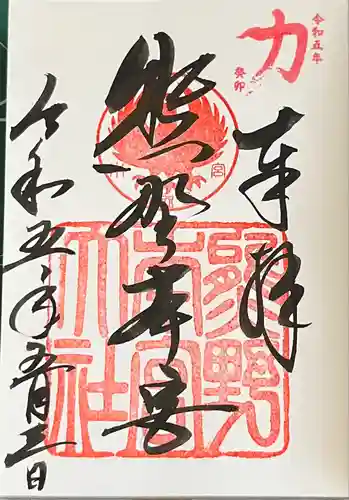 力
令和五年
癸卯
奉拝
熊野本宮
令和五年五月三日
熊野本宮大社
宮